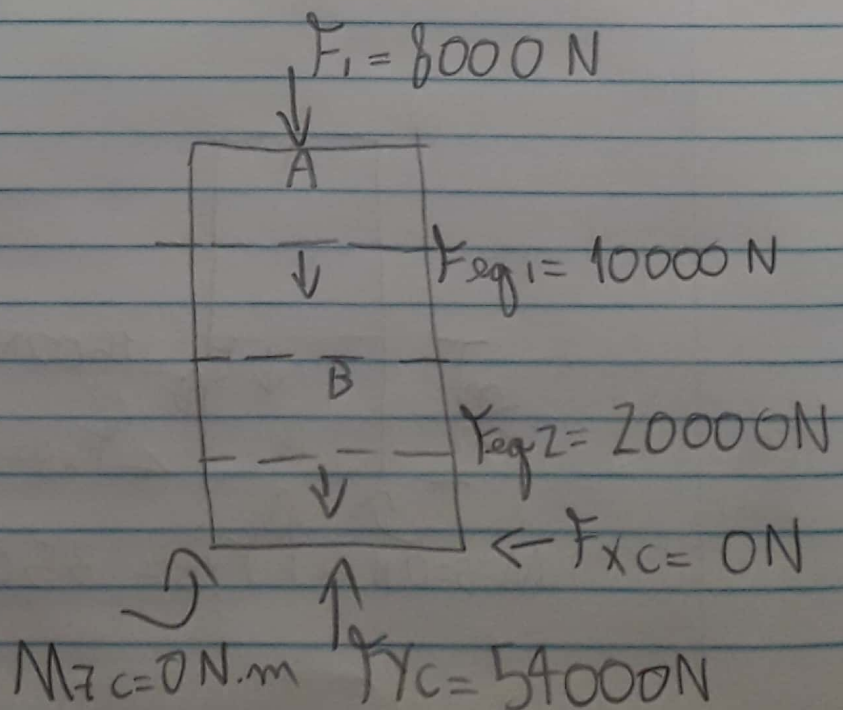 F₁ = 8000 N
A
Feq1 = 10000 N
B
Feq2 = 20000N
FXC = 0N
MZC=0N.m FYC = 54000N